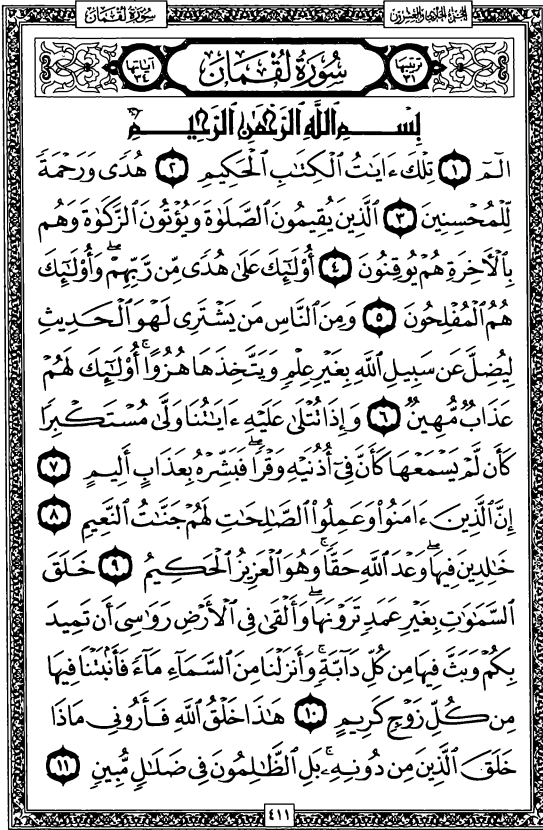 سُورَةُ لُقْمَانَ
الجُزْءُ الحَادِي وَالعِشْرُونَ
ترتيبها ٣١
سُورَةُ لُقْمَانَ
آياتها ٣٤
بِسْمِ ٱللَّهِ ٱلرَّحْمَٰنِ ٱلرَّحِيمِ
الٓمٓ ١ تِلْكَ ءَايَٰتُ ٱلْكِتَٰبِ ٱلْحَكِيمِ ٢ هُدًى وَرَحْمَةً
لِّلْمُحْسِنِينَ ٣ ٱلَّذِينَ يُقِيمُونَ ٱلصَّلَوٰةَ وَيُؤْتُونَ ٱلزَّكَوٰةَ وَهُم
بِٱلْءَاخِرَةِ هُمْ يُوقِنُونَ ٤ أُو۟لَٰٓئِكَ عَلَىٰ هُدًى مِّن رَّبِّهِمْ ۖ وَأُو۟لَٰٓئِكَ
هُمُ ٱلْمُفْلِحُونَ ٥ وَمِنَ ٱلنَّاسِ مَن يَشْتَرِى لَهْوَ ٱلْحَدِيثِ
لِيُضِلَّ عَن سَبِيلِ ٱللَّهِ بِغَيْرِ عِلْمٍ وَيَتَّخِذَهَا هُزُوًا ۚ أُو۟لَٰٓئِكَ لَهُمْ
عَذَابٌ مُّهِينٌ ٦ وَإِذَا تُتْلَىٰ عَلَيْهِ ءَايَٰتُنَا وَلَّىٰ مُسْتَكْبِرًا
كَأَن لَّمْ يَسْمَعْهَا كَأَنَّ فِىٓ أُذُنَيْهِ وَقْرًا ۖ فَبَشِّرْهُ بِعَذَابٍ أَلِيمٍ ٧
إِنَّ ٱلَّذِينَ ءَامَنُوا۟ وَعَمِلُوا۟ ٱلصَّٰلِحَٰتِ لَهُمْ جَنَّٰتُ ٱلنَّعِيمِ ٨
خَٰلِدِينَ فِيهَا ۖ وَعْدَ ٱللَّهِ حَقًّا ۚ وَهُوَ ٱلْعَزِيزُ ٱلْحَكِيمُ ٩ خَلَقَ
ٱلسَّمَٰوَٰتِ بِغَيْرِ عَمَدٍ تَرَوْنَهَا ۖ وَأَلْقَىٰ فِى ٱلْأَرْضِ رَوَٰسِىَ أَن تَمِيدَ
بِكُمْ وَبَثَّ فِيهَا مِن كُلِّ دَآبَّةٍ ۚ وَأَنزَلْنَا مِنَ ٱلسَّمَآءِ مَآءً فَأَنۢبَتْنَا فِيهَا
مِن كُلِّ زَوْجٍ كَرِيمٍ ١٠ هَٰذَا خَلْقُ ٱللَّهِ فَأَرُونِى مَاذَا
خَلَقَ ٱلَّذِينَ مِن دُونِهِۦ ۚ بَلِ ٱلظَّٰلِمُونَ فِى ضَلَٰلٍ مُّبِينٍ ١١
٤١١